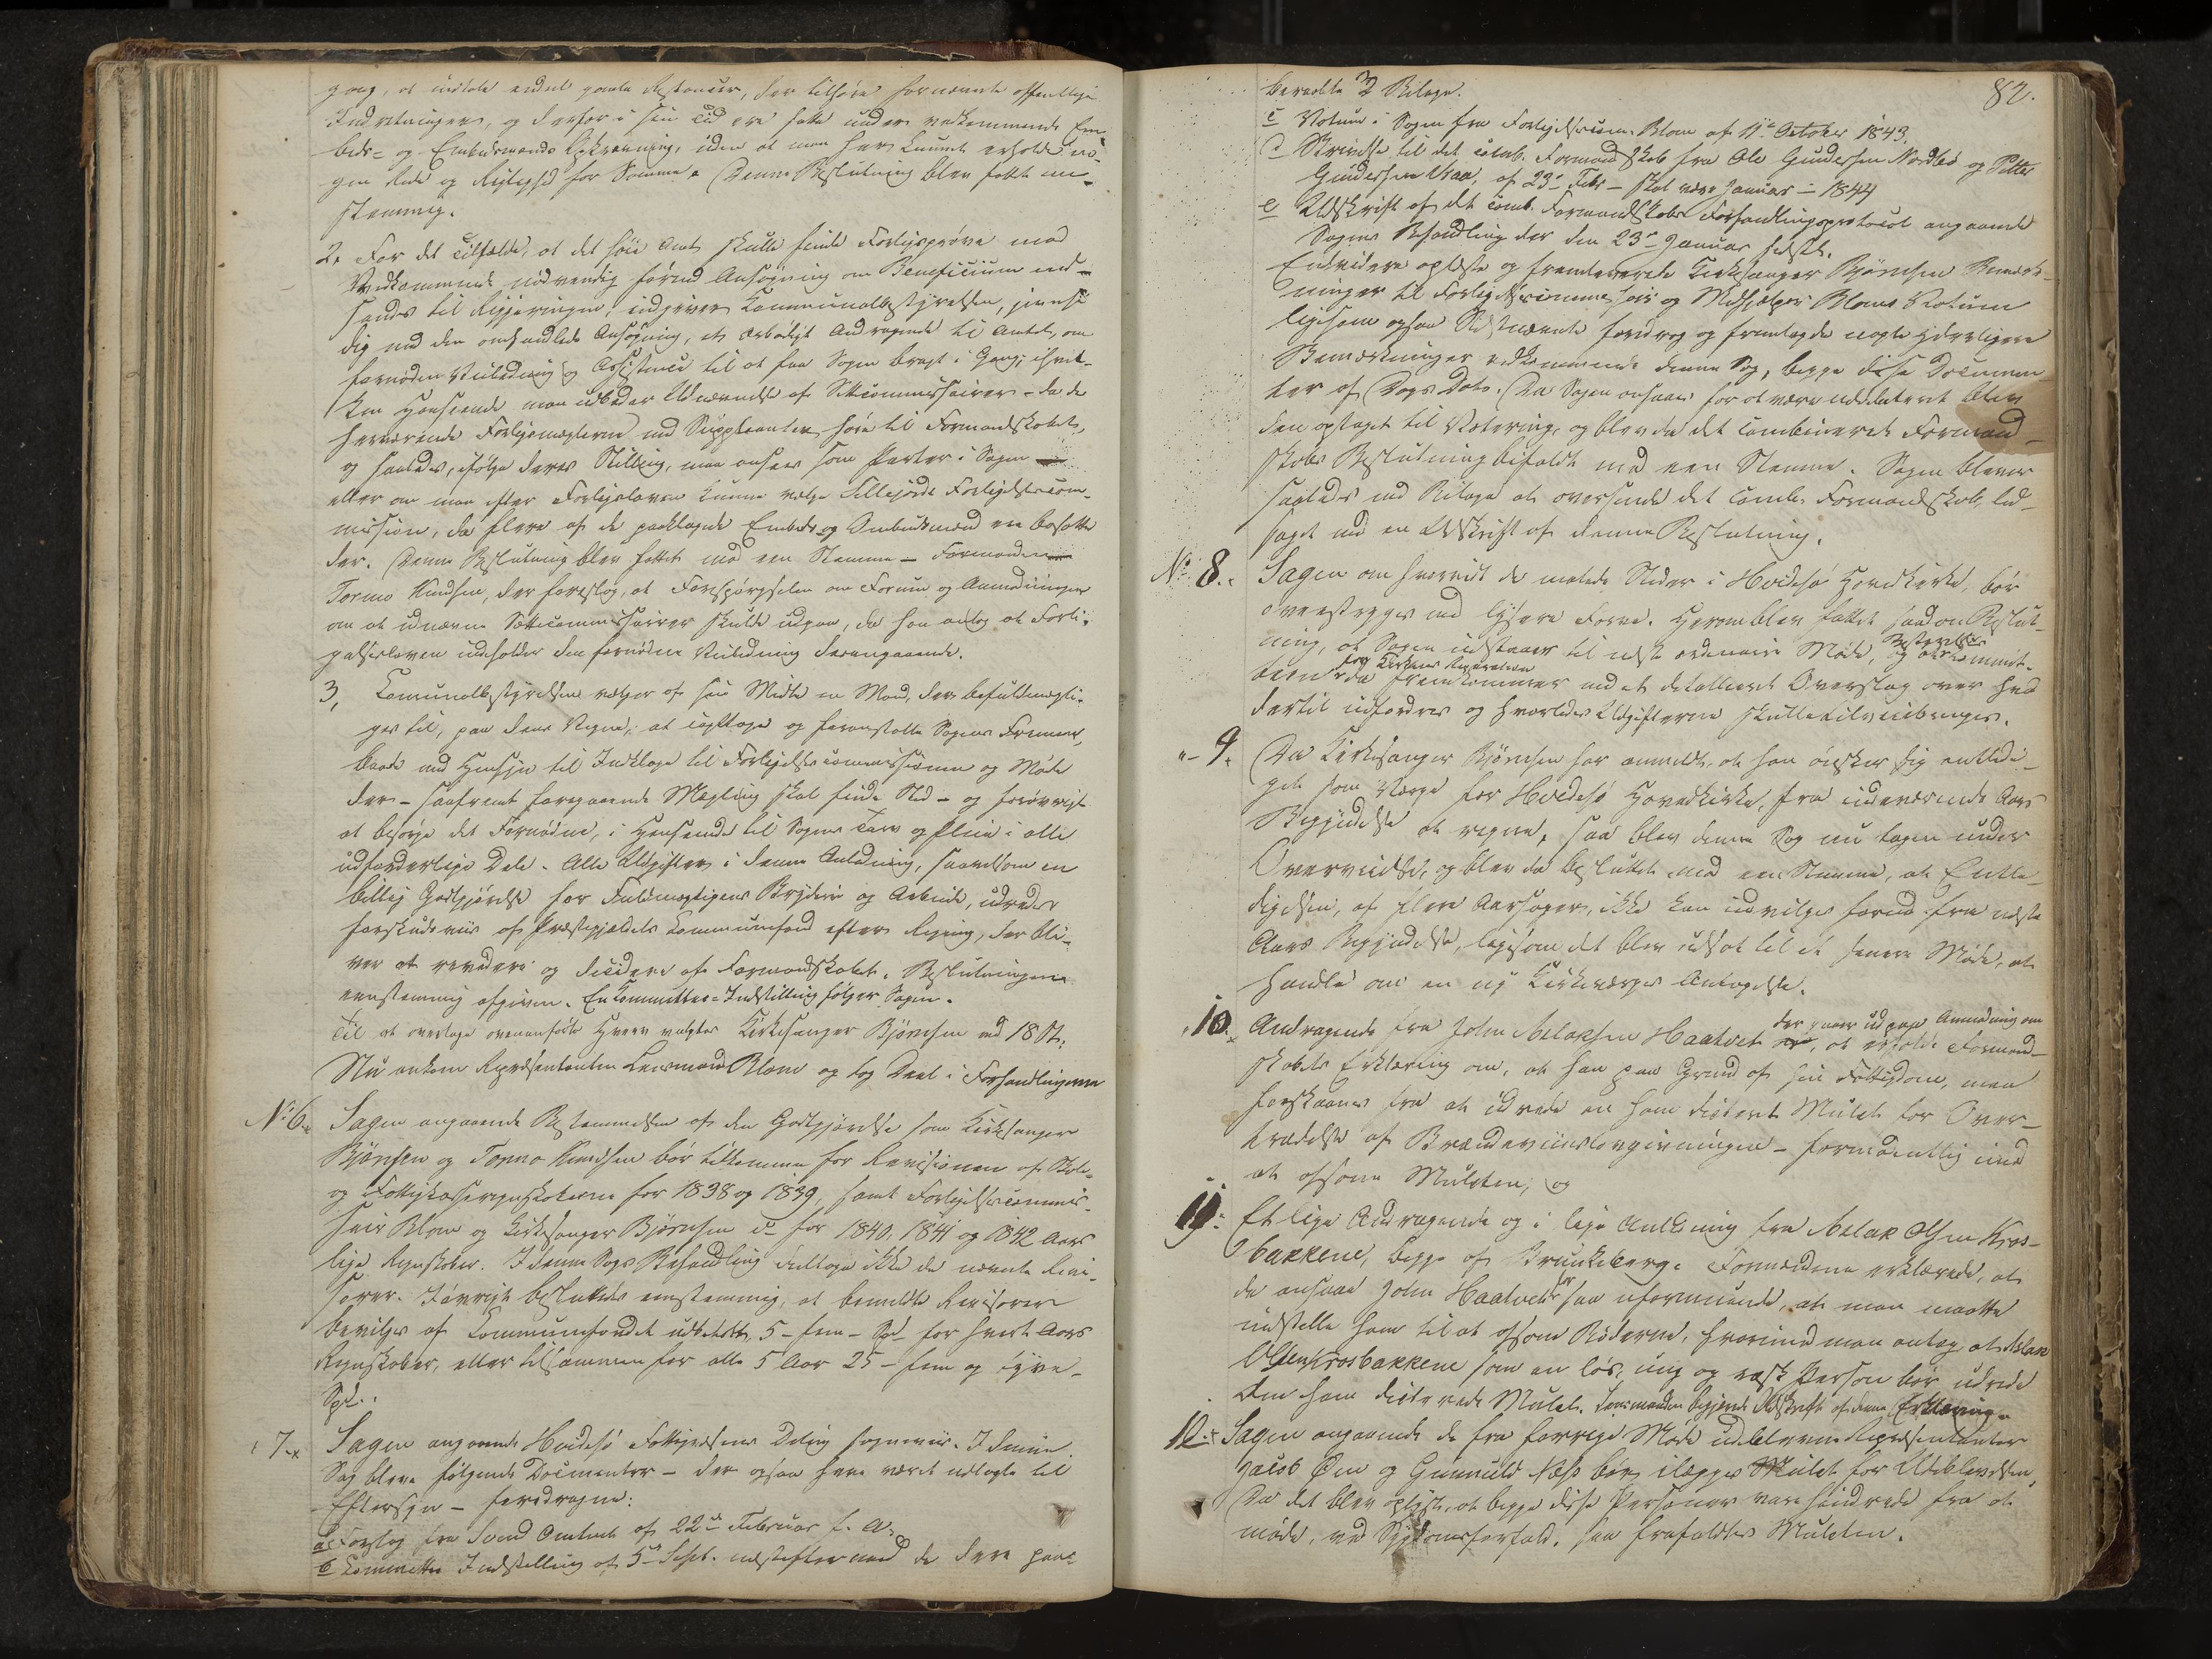 gang, at indtale endel gamle Restancer, der tilhøre fornævnte offentlige
Indretninger, og derfor i sin Tid ere satte under vedkommende Em-
beds- og Ombudsmænds Opkrævning, uden at man har kunnet erholde no-
gen Rede og Rigtighed for Samme. Denne Beslutning blev fattet een-
stemmig.
2. For det Tilfælde, at det høie Amt skulde finde Forligsprøve med
Vedkommende nødvendig førend Ansøgning om Beneficium ind-
sendes til Regjeringen, indgiver Communalbestyrelsen, jevnsi-
dig med den omhandlede Ansøgning, et ærbødigt Andragende til Amtet, om
fornøden Veiledning og Assistence til at faa Sagen bragt i Gang, i hvil-
ken Henseende man udbeder Udnævnelse af Settecommissairer - da de
herværende Forligsmæglerne med Suppleanter høre til Formandskabet,
og saaledes, ifølge deres Stilling, maa ansees som Parter i Sagen
eller om man efter Forligsloven kunne vælge Sillejords Forligelsescom-
mission, da flere af de paaklagede Embeds og Ombudsmænd ere bosatte
der. Denne Beslutning blev fattet mod een Stemme - Formanden
Tormo Knudsen, der foreslog, at Forespørgselen om Forum og Anmodningen
om at udnævne Sættecommissairer skulde udgaa, da han antog at Forli-
gelsesloven indeholder den fornødne Veiledning derangaaende.
3, Communalbestyrelsen vælger af sin Midte en Mand, der befuldmægti-
ges til, paa dens Vegne, at iagttage og foranstalte Sagens Fremme,
baade med Hensyn til Indklage til Forligelsescommissionen og Møde
der - saafremt foregaaende Mægling skal finde Sted - og forøvrigt
at besørge det Fornødne, i Henseende til Sagens Tarv og Pleie i alle
udfordrerlige Dele. Alle Udgifter i denne Anledning, saavelsom en
billig Godtgjørelse for Fuldmægtigens Bryderie og Arbeide, udredes
forskudsviis af Præstegjældets Communefond efter Regning, der bli-
ver at revidere og decidere af Formandskabet. Beslutningen
eenstemmig afgiven. En Committee-Indstilling følger Sagen.
Til at overtage ovenanførte Hverv valgtes Kirkesanger Bjørnsen med 18 St.
Nu ankom Repræsentanten Lensmand Blom og tog Deel i Forhandlingerne
No 6. Sagen angaaende Bestemmelsen af den Godtgjørelse som Kirkesanger
Bjørnsen og Tormo Knudsen bør tilkomme for Revisionen af Skole-
og Fattigkasseregnskaberne for 1838 og 1839, samt Forligelsescommis-
sair Blom og Kirkesanger Bjørnsen do for 1840, 1841 og 1842 Aars
lige Regnskaber. I denne Sags Behandling deeltoge ikke de nævnte Revi-
sorer. Iøvrigt besluttedes eenstemmig, at bemeldte Revisorer
bevilges af Communefondet udbetalt 5 - fem - Spd for hvert Aars
Regnskaber, eller tilsammen for alle 5 Aar 25 - fem og tyve -
Spd.
7. Sagen angaaende Hvidesø Fattigvæsens Deling sogneviis. I denne
Sag bleve følgende Documenter - der ogsaa have været udlagte til
Eftersyn - foredragne:
a Forslag fra Svend Omtvedt af 22de Februar f. A.
b Committee Indstilling af 5te Septbr. næstefter med de dere paa-
82.
beraabte 2 Bilage.
c Votum i Sagen fra Forligelsescom. Blom af 11te October 1843.
d Skrivelse til det comb. Formandskab fra Ole Gundersen Nordbø og Petter
Gundersen Vraa, af 23de Febr - skal være Januar - 1844
e Udskrift af det comb. Formandskabs Forhandlingsprotocol angaaende
Sagens Behandling der den 23de Januar sidstl.
Endvidere oplæste og fremleverede Kirkesanger Bjørnsen Bemærk-
ninger til Forligelsescommissair og Medhjælper Bloms Votum
ligesom ogsaa Sidstnævnte foredrog og fremlagde nogle yderligere
Bemærkninger vedkommende denne Sag, begge disse Documen-
ter af Dags Dato. Da Sagen ansaaes for at være uddebateret blev
den optaget til Votering, og blev da det combinerede Formand-
skabs Beslutning bifaldt med een Stemme. Sagen bliver
saaledes med Bilage at oversende det comb. Formandskab, led-
saget med en Udskrift af denne Beslutning.
No 8. Sagen om hvorvidt de malede Stæder i Hvidesø Hovedkirke, bør
overstryges med lysere Farve. Herom blev fattet saadan Beslut-
ning, at Sagen udstaaer til næste ordinaire Møde, og at Bestyrelses Committ-
teen for Kirkens Reparation da fremkommer med et detailleret Overslag over hvad
dertil udfordres og hvorledes Udgifterne skulle tilveiebringes.
" 9. Da Kirkesanger Bjørnsen har anmeldt, at han ønsker sig entledi-
get som Værge for Hvidesø Hovedkirke, fra indeværende Aars
Begyndelse at regne, saa blev denne Sag nu tagen under
Overveielse, og blev da besluttet mod een Stemme, at Entle-
digelsen, af flere Aarsager, ikke kan indvilges førend fra næste
Aars Begyndelse, ligesom det blev udsat til et senere Møde, at
handle om en ny Kirkeværges Antagelse.
" 10. Andragende fra John Aslaksen Haatvet der gaaer ud paa Anmodning om, at erholde Formand-
skabets Erklæring om, at han paa Grund af sin Fattigdom, maa
forskaanes fra at udrede en ham dicteret Mulct for Over-
trædelse af Brændeviinslovgivningen - formodentlig imod
at afsone Mulcten, og
11. Et lige Andragende og i lige Anledning fra Aslak Olsen Kros-
bakkene, begge af Brunkeberg. Formændene erklærede, at
de ansaae John Haatvet for saa uformuende, at man maatte
indstille ham til at afsone Bøderne, hvorimod man antog at Aslak
Olsen Krosbakkene som en løs, ung og rask Person bør udrede
den ham dicterede Mulct. Lensmanden begjerede Udskrift af denne Erklæring.
12. Sagen angaaende de fra forrige Møde udeblevne Repræsentanter
Jacob Øen og Gunnuld Næs bør ilægges Mulct for Udeblivelsen.
Da det blev oplyst, at begge disse Personer vare hindrede fra at
møde, ved Sygdomsforfald, saa frafaldtes Mulcten.